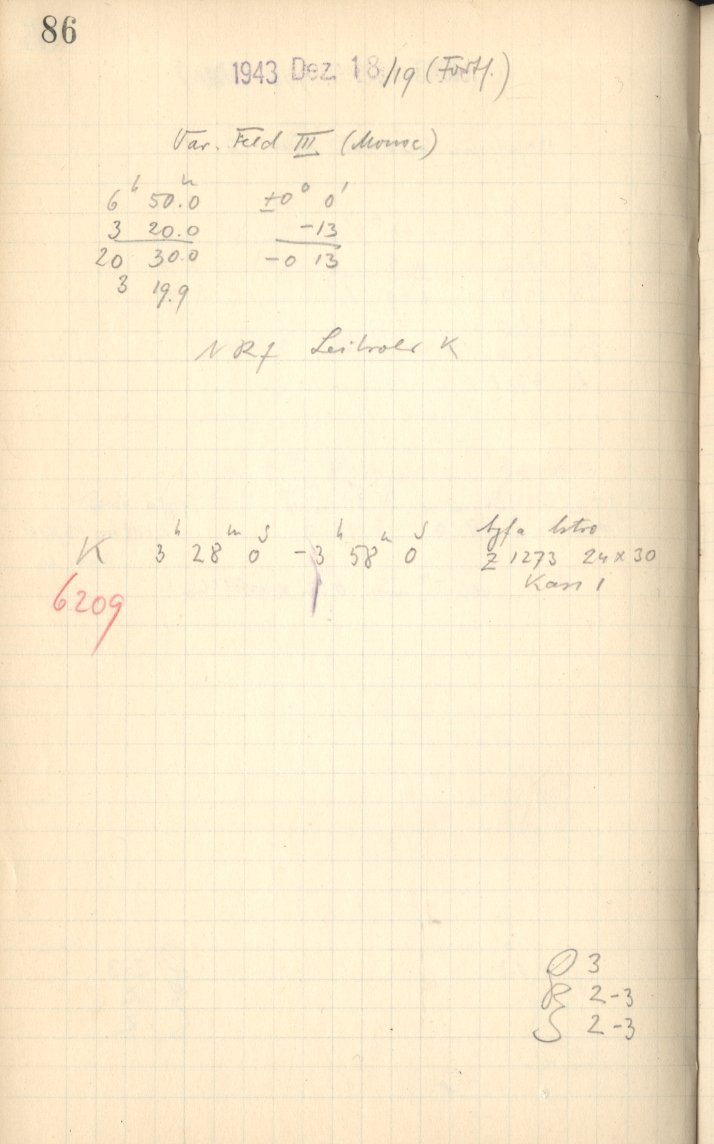 86
1943 Dez. 18/19 (Fortf.)
Var. Feld III (Monoc)
6ʰ 50.0ᵐ ±0° 0'
3 20.0 -13
20 30.0 -0 13
3 19.9
K
K 3ʰ 28ᵐ 0ˢ -3ʰ 58ᵐ 0ˢ Agfa Astro
Z 1273 24×30
Kass 1
6209
D 3
R 2-3
S 2-3